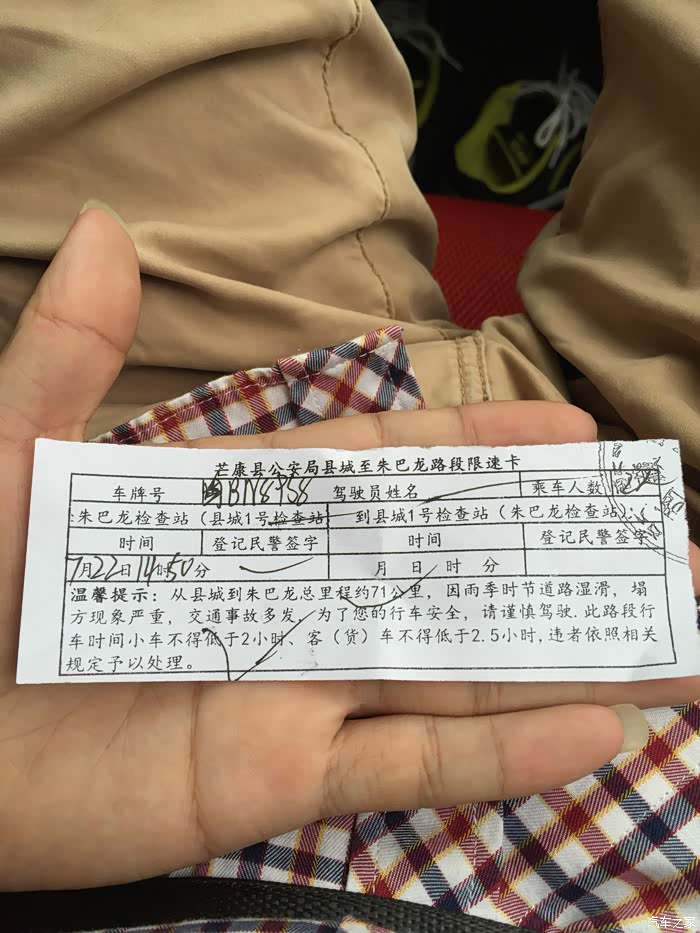 芒康县公安局县城至朱巴龙路段限速卡
车牌号 BN8758 驾驶员姓名 乘车人数
朱巴龙检查站（县城1号检查站 到县城1号检查站（朱巴龙检查站）：
时间 登记民警签字 时间 登记民警签字
7月22日14时50分 月 日 时 分
温馨提示：从县城到朱巴龙总里程约71公里，因雨季时节道路湿滑，塌
方现象严重，交通事故多发，为了您的行车安全，请谨慎驾驶.此路段行
车时间小车不得低于2小时、客（货）车不得低于2.5小时,违者依照相关
规定予以处理。
汽车之家